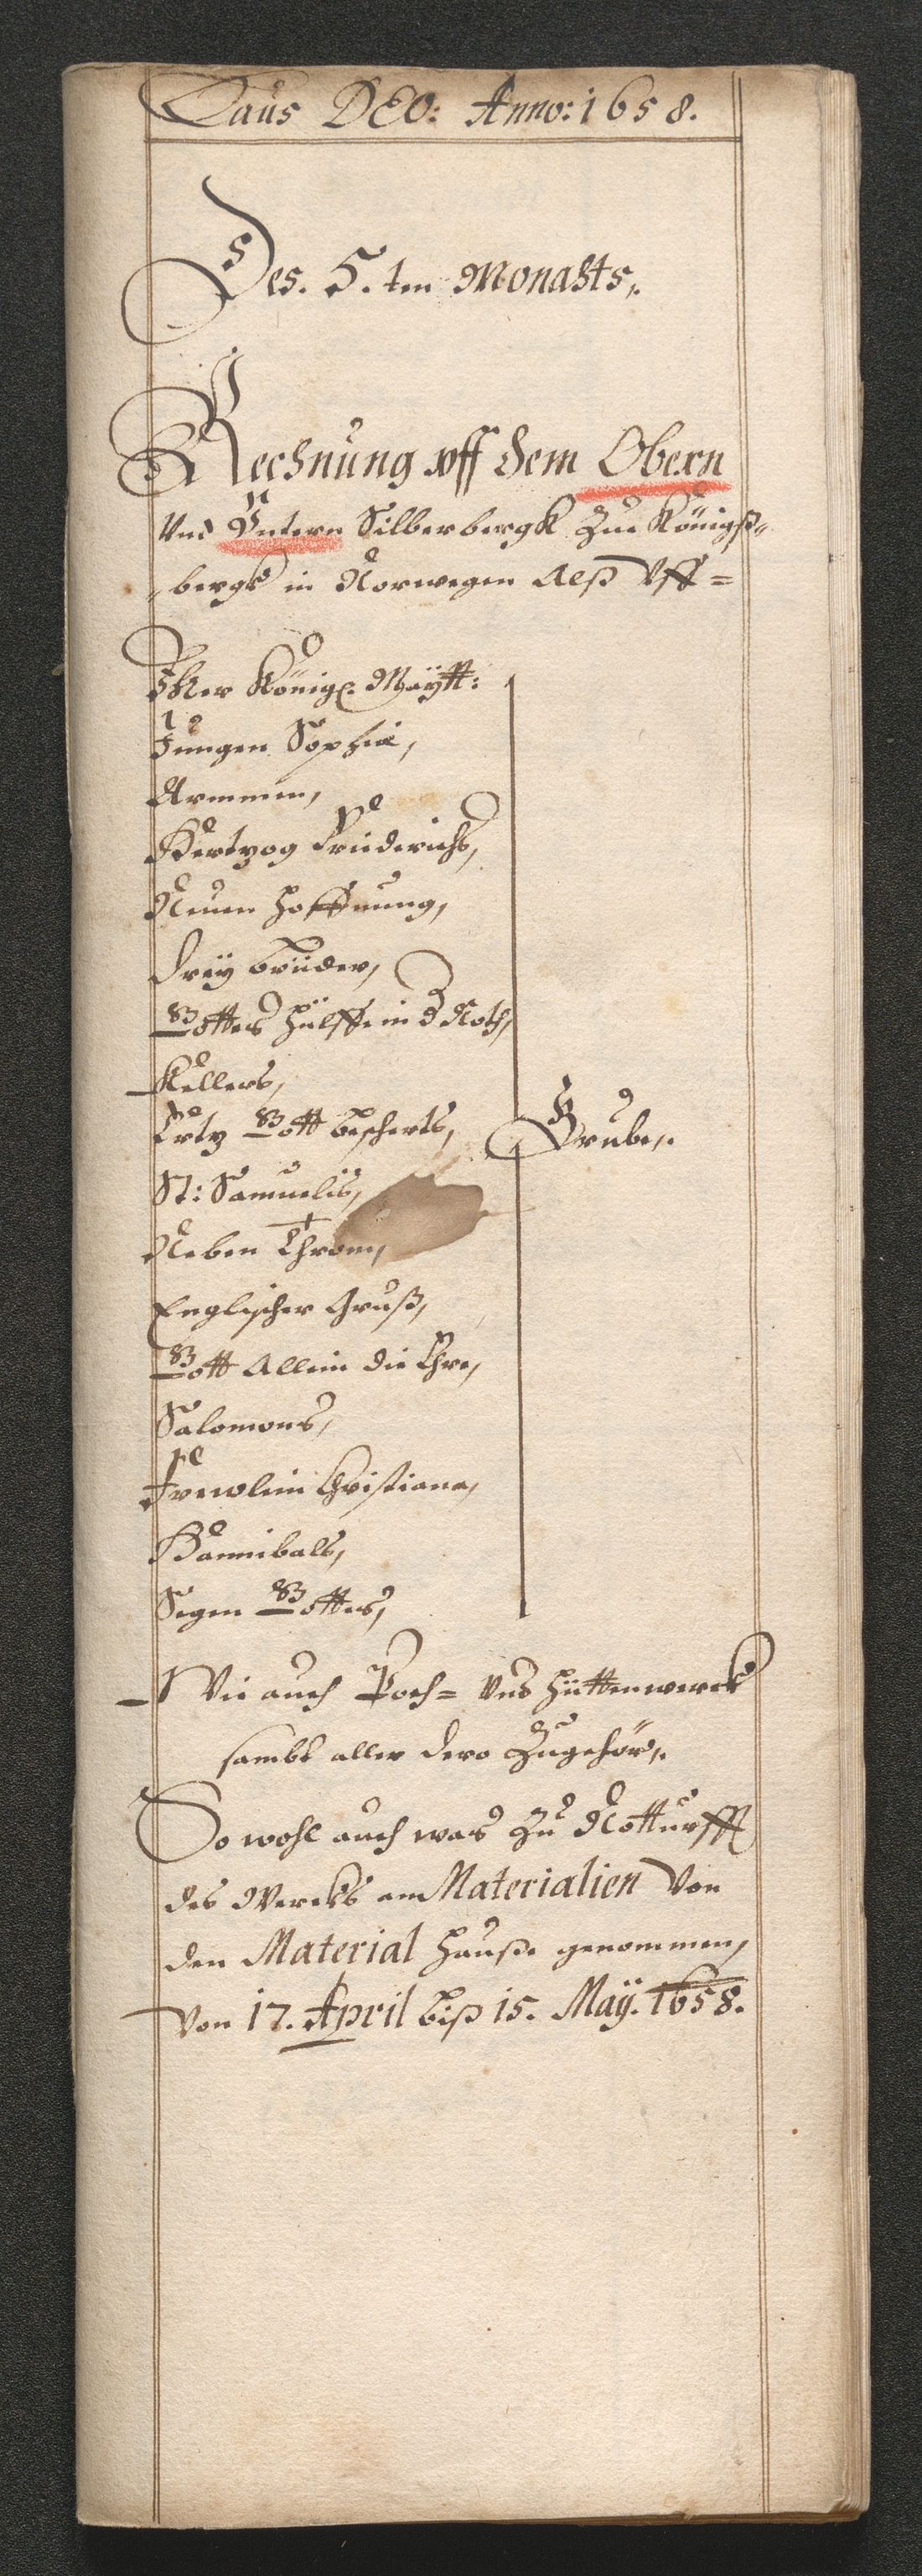 Laus DEO: Anno: 1658.
Des. 5. ten Monahts,.
Rechnung vff dem Obern
Vnd Vntern Silberbergk Zue Königß„
bergk in Norwegen Alß Vff=
Ihrer Königl. Maÿtt:
Jungen Sophia,
Armmen,
Hertzog Friederichs,
Neuen Hoffnung,
Dreÿ brüder,
Gottes Hülffe in d Noth,
Kellers,
Ertz Gott bescherts,
Grube,.
St: Samuelis,
Neben Thronn,
Englischer Gruß,
Gott Allein die Ehre,
Salomons,
Frewlein Christiana,
Hannibals,
Segen Gottes,
Wie auch Poch= Vnd Hüttenwerck
sambt aller dero Zugehör,.
So wohl auch was Zu Notturfft
des Wercks am Materialien Von
den Material Hauße genommen,
Von 17. April biß 15. Maÿ. 1658.